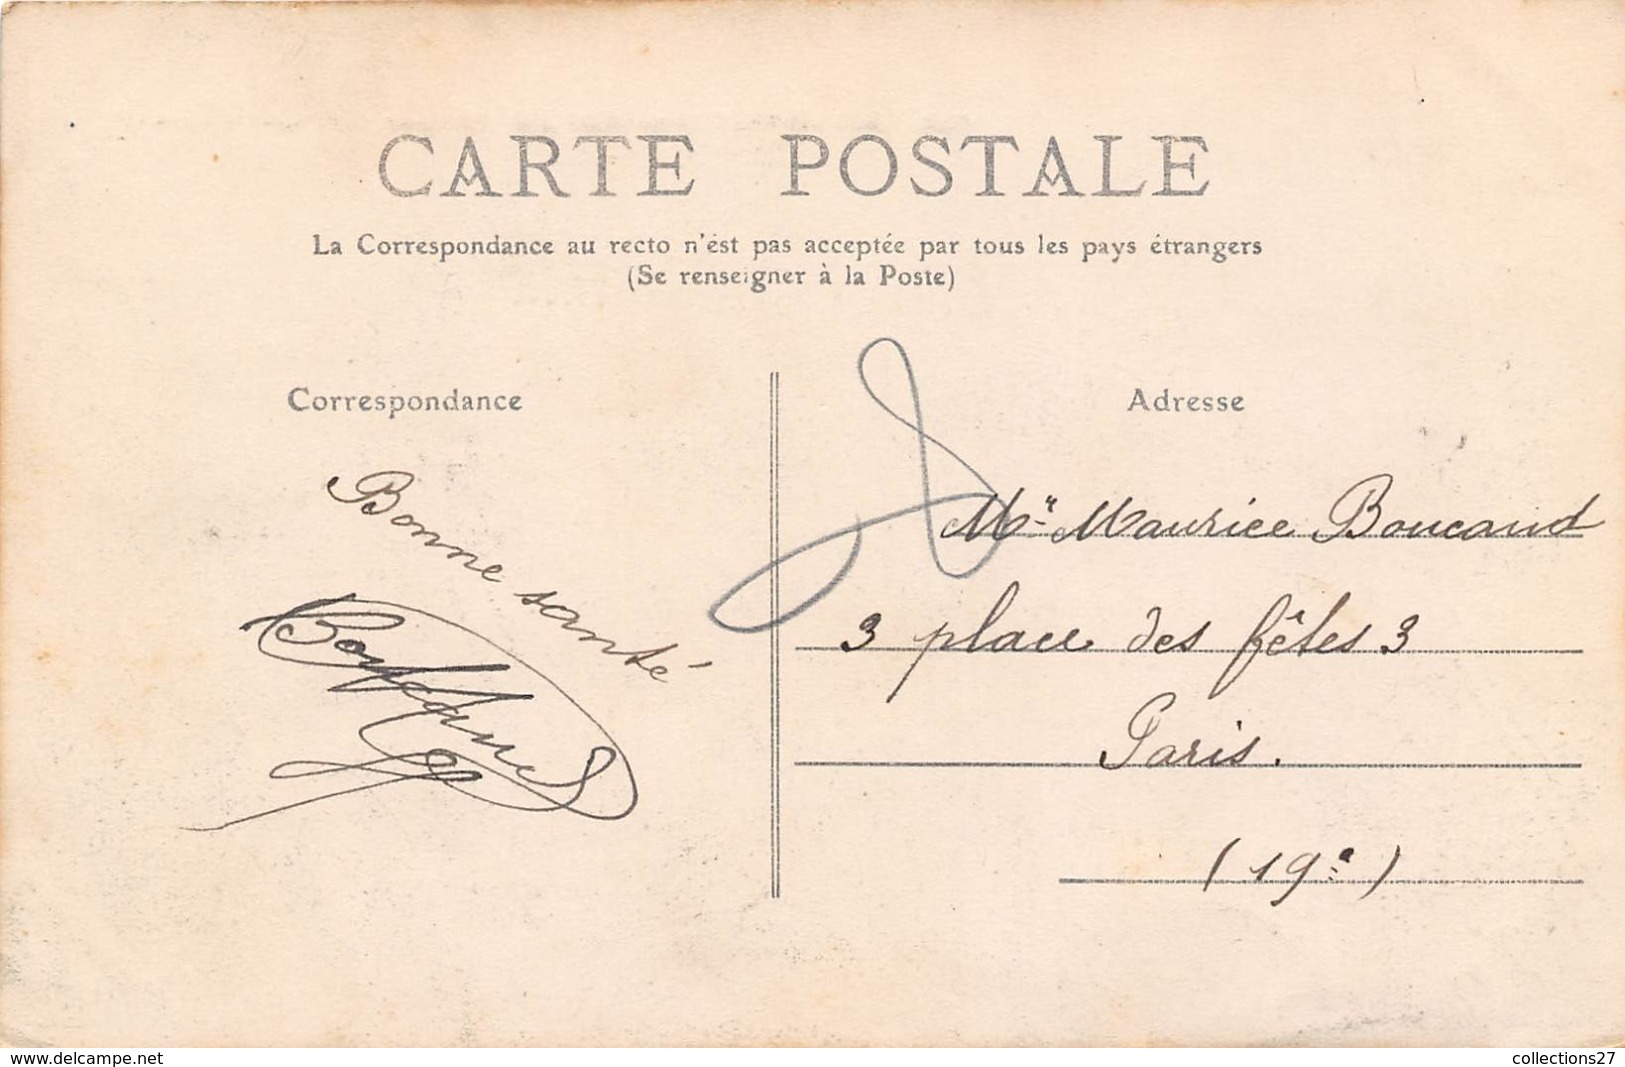 CARTE POSTALE
La Correspondance au recto n'ést pas acceptée par tous les pays étrangers
(Se renseigner à la Poste)
Correspondance
Bonne santé
Adresse
Mr Maurice Boucaud
3 place des fêtes 3
Paris.
(19e)
www.delcampe.net
collections27